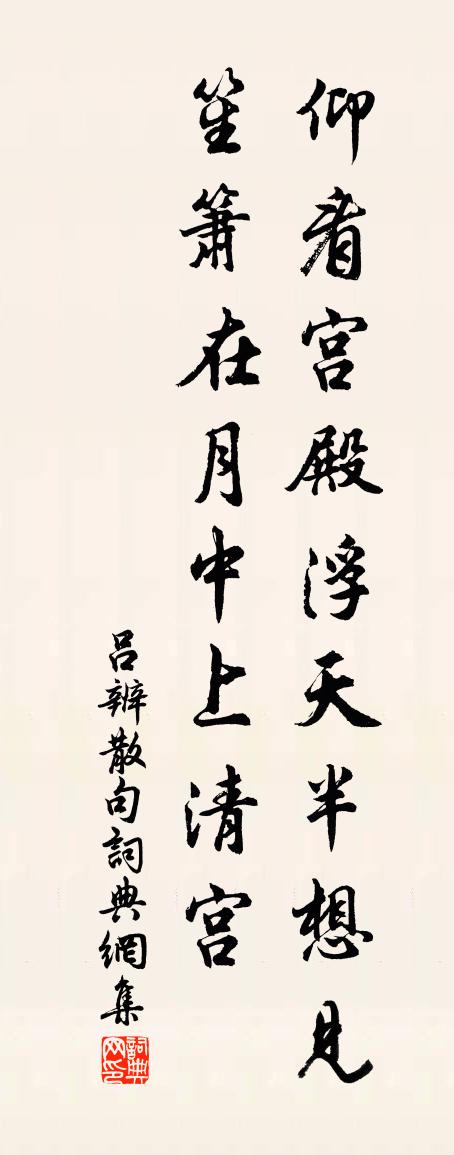 仰看宫殿浮天半想见
笙箫在月中上清宫
吕辨散句詞典網集
詞典网印